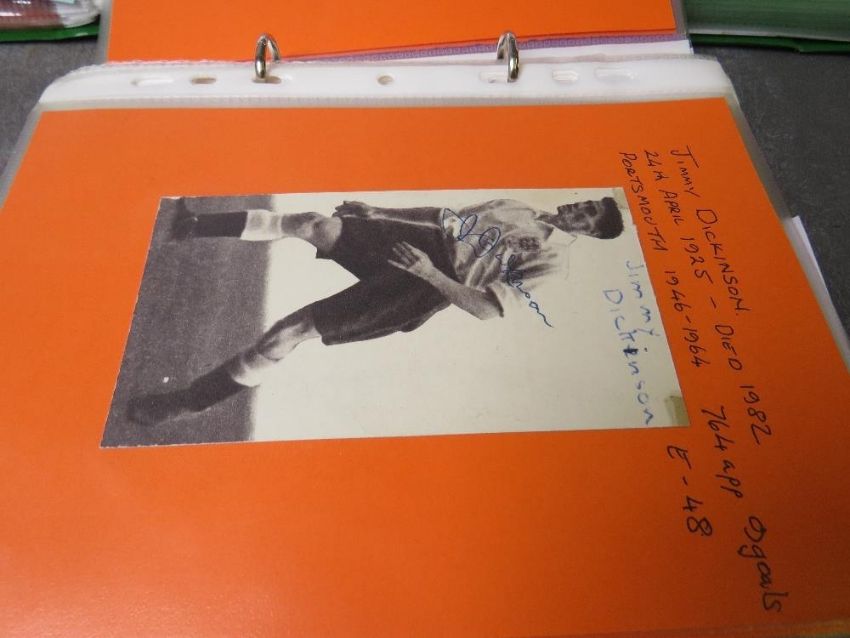 JIMMY DICKINSON.
24th APRIL 1925 - DIED 1982
PORTSMOUTH 1946-1964 764 app 9 goals
E - 48
Jimmy.
Dickinson
J Dickinson